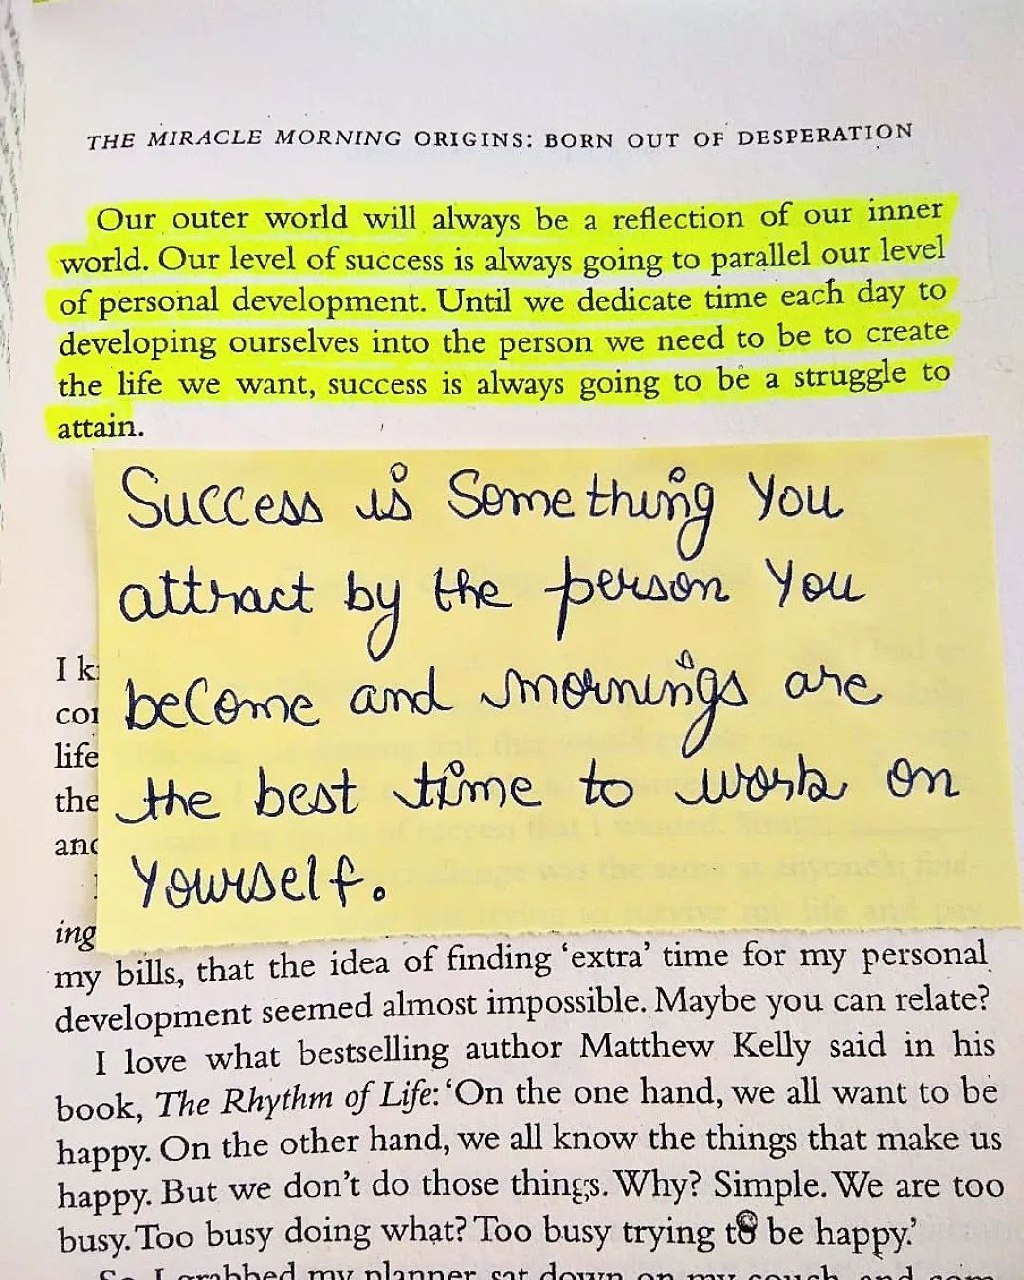 THE MIRACLE MORNING ORIGINS: BORN OUT OF DESPERATION
Our outer world will always be a reflection of our inner
world. Our level of success is always going to parallel our level
of personal development. Until we dedicate time each day to
developing ourselves into the person we need to be to create
the life we want, success is always going to be a struggle to
attain.
Success is Something You
attract by the person You
become and mornings are
the best time to work on
Yourself.
I
life
the
ing
my bills, that the idea of finding ‘extra’ time for my personal
development seemed almost impossible. Maybe you can relate?
I love what bestselling author Matthew Kelly said in his
book, The Rhythm of Life: ‘On the one hand, we all want to be
happy. On the other hand, we all know the things that make us
happy. But we don’t do those things. Why? Simple. We are too
busy. Too busy doing what? Too busy trying to be happy.’
So I grabbed my planner, sat down on my couch, and